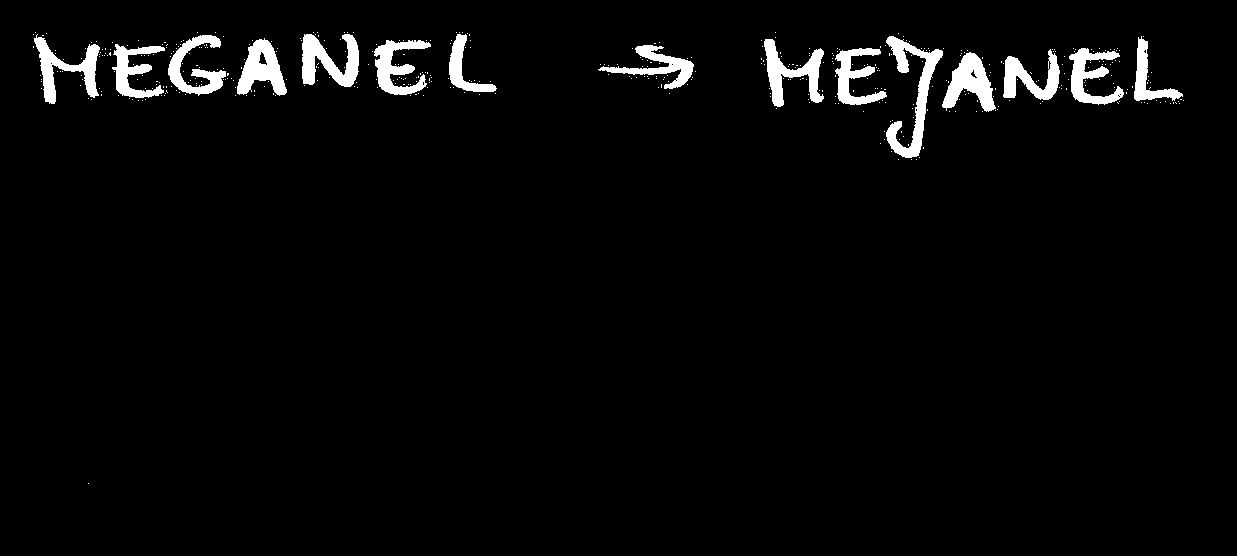 MEGANEL → MEJANEL